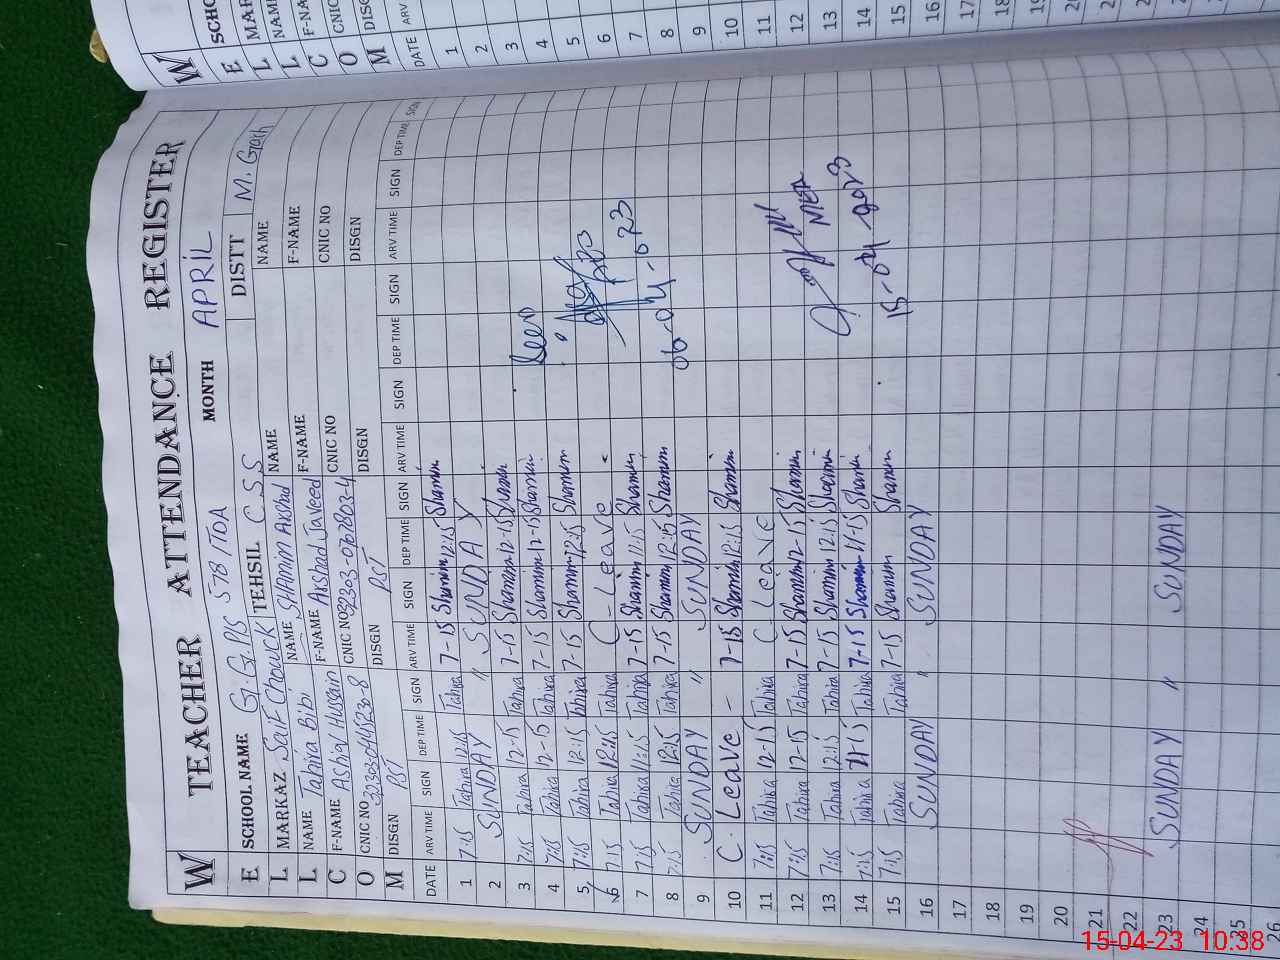 W TEACHER ATTENDANCE REGISTER
E SCHOOL NAME G.G.P/S 578/TDA MONTH APRIL
L MARKAZ Saif Chowck TEHSIL C.S.S DISTT M. Grarh
L NAME Tahira Bibi NAME SHAmim Akshad NAME NAME
C F-NAME Ashiq Hussain F-NAME Arshad Javeed F-NAME F-NAME
O CNIC NO CNIC NO CNIC NO CNIC NO
M DISGN PST DISGN PST DISGN DISGN
DATE ARV TIME SIGN DEP TIME SIGN ARV TIME SIGN DEP TIME SIGN ARV TIME SIGN DEP TIME SIGN ARV TIME SIGN DEP TIME SIGN
1 7:15 Tahira 12:15 Tahira 7-15 Shamim 12:15 Shamim
2 SUNDAY " SUNDAY
3 7:15 Tahira 12-15 Tahira 7-15 Shamim 12-15 Shamim
4 7:15 Tahira 12-15 Tahira 7-15 Shamim 12-15 Shamim Seen
5 7:15 Tahira 12:15 Tahira 7-15 Shamim 12:15 Shamim
6 7:15 Tahira 12:15 Tahira C-Leave
7 7:15 Tahira 11:15 Tahira 7-15 Shamim 11:15 Shamim
8 7:15 Tahira 12:15 Tahira 7-15 Shamim 12:15 Shamim 06-04-023
9 SUNDAY " SUNDAY
10 C. Leave - 7-15 Shamim 12:15 Shamim
11 7:15 Tahira 12-15 Tahira C. Leave
12 7:15 Tahira 12-15 Tahira 7-15 Shamim 12-15 Shamim MEA
13 7:15 Tahira 12:15 Tahira 7-15 Shamim 12:15 Shamim
14 7:15 Tahira 11-15 Tahira 7-15 Shamim 11-15 Shamim
15 7:15 Tahira Tahira 7-15 Shamim Shamim 15-04-2023
16 SUNDAY " SUNDAY
17
18
19
20
21
22
23 SUNDAY " SUNDAY
24
25
26
W
E SCHO
L MAR
L NAM
C F-NA
O CNIC
M DISG
DATE ARV
1
2
3
4
5
6
7
8
9
10
11
12
13
14
15
16
17
18
19
20
21
22
23
24
25
15-04-23 10:38